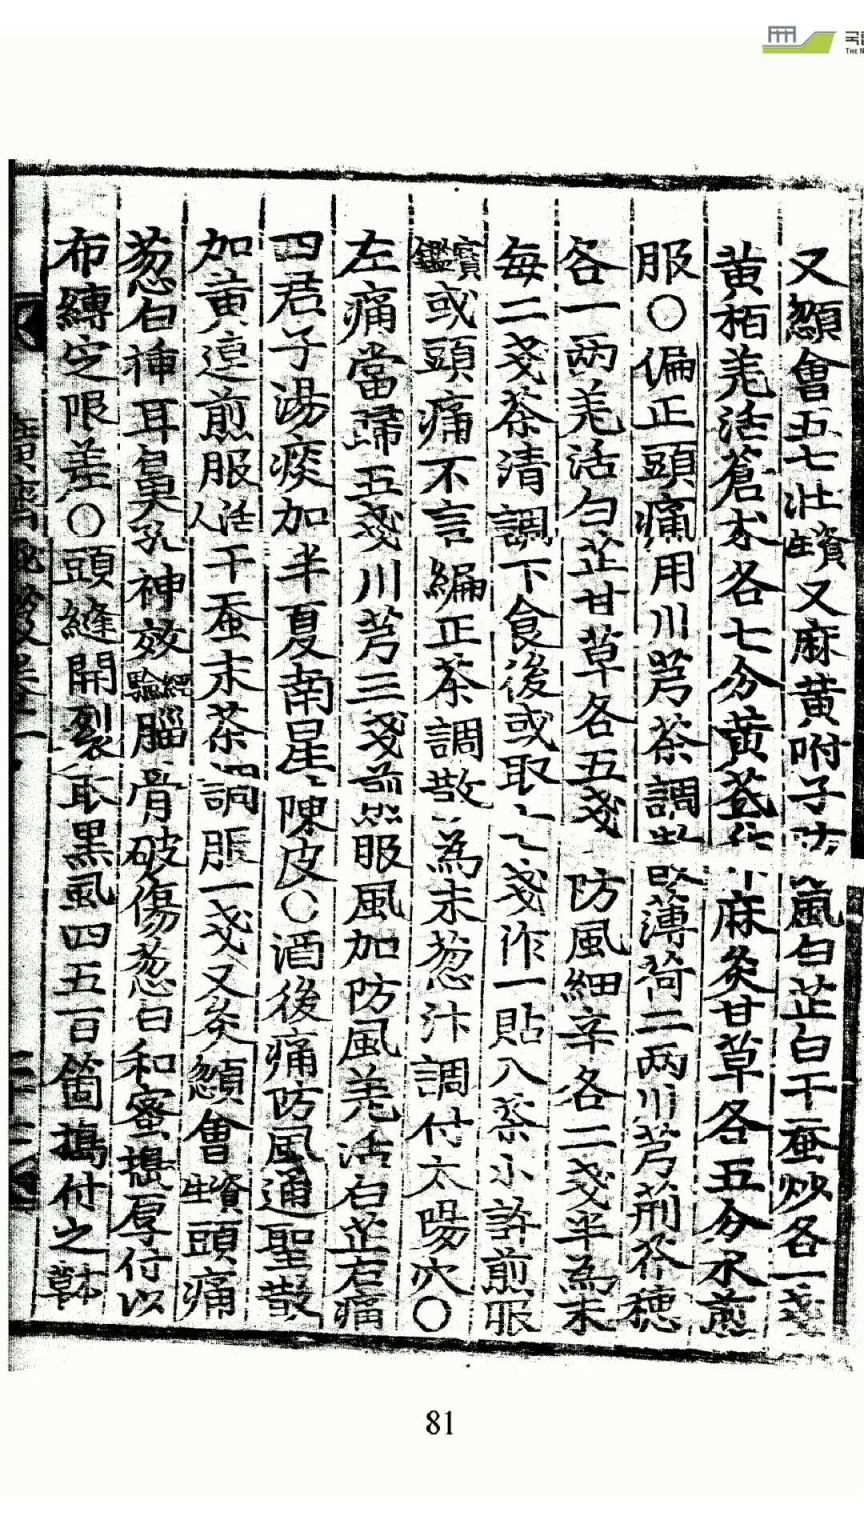 又顖會五七壯資生又麻黃附子防風白芷白干蚕炒各一戔
黃栢羌活蒼朮各七分黃芪升麻灸甘草各五分水煎
服○偏正頭痛用川芎茶調散薄荷二两川芎荊芥穗
各一两羌活白芷甘草各五戔防風細辛各二戔半為末
每二戔茶清調下食後或取七戔作一貼入茶小許煎服
寶鑑或頭痛不言編正茶調散為末葱汁調付太陽穴○
左痛當歸五戔川芎三戔煎服風加防風羌活白芷右痛
四君子湯痰加半夏南星陳皮○酒後痛防風通聖散
加黃連煎服活人干蚕末茶調服一戔又灸顖會資生頭痛
葱白揷耳鼻孔神效經驗腦骨破傷葱白和蜜擣厚付以
布縛定限差○頭縫開裂取黑虱四五百箇搗付之
81